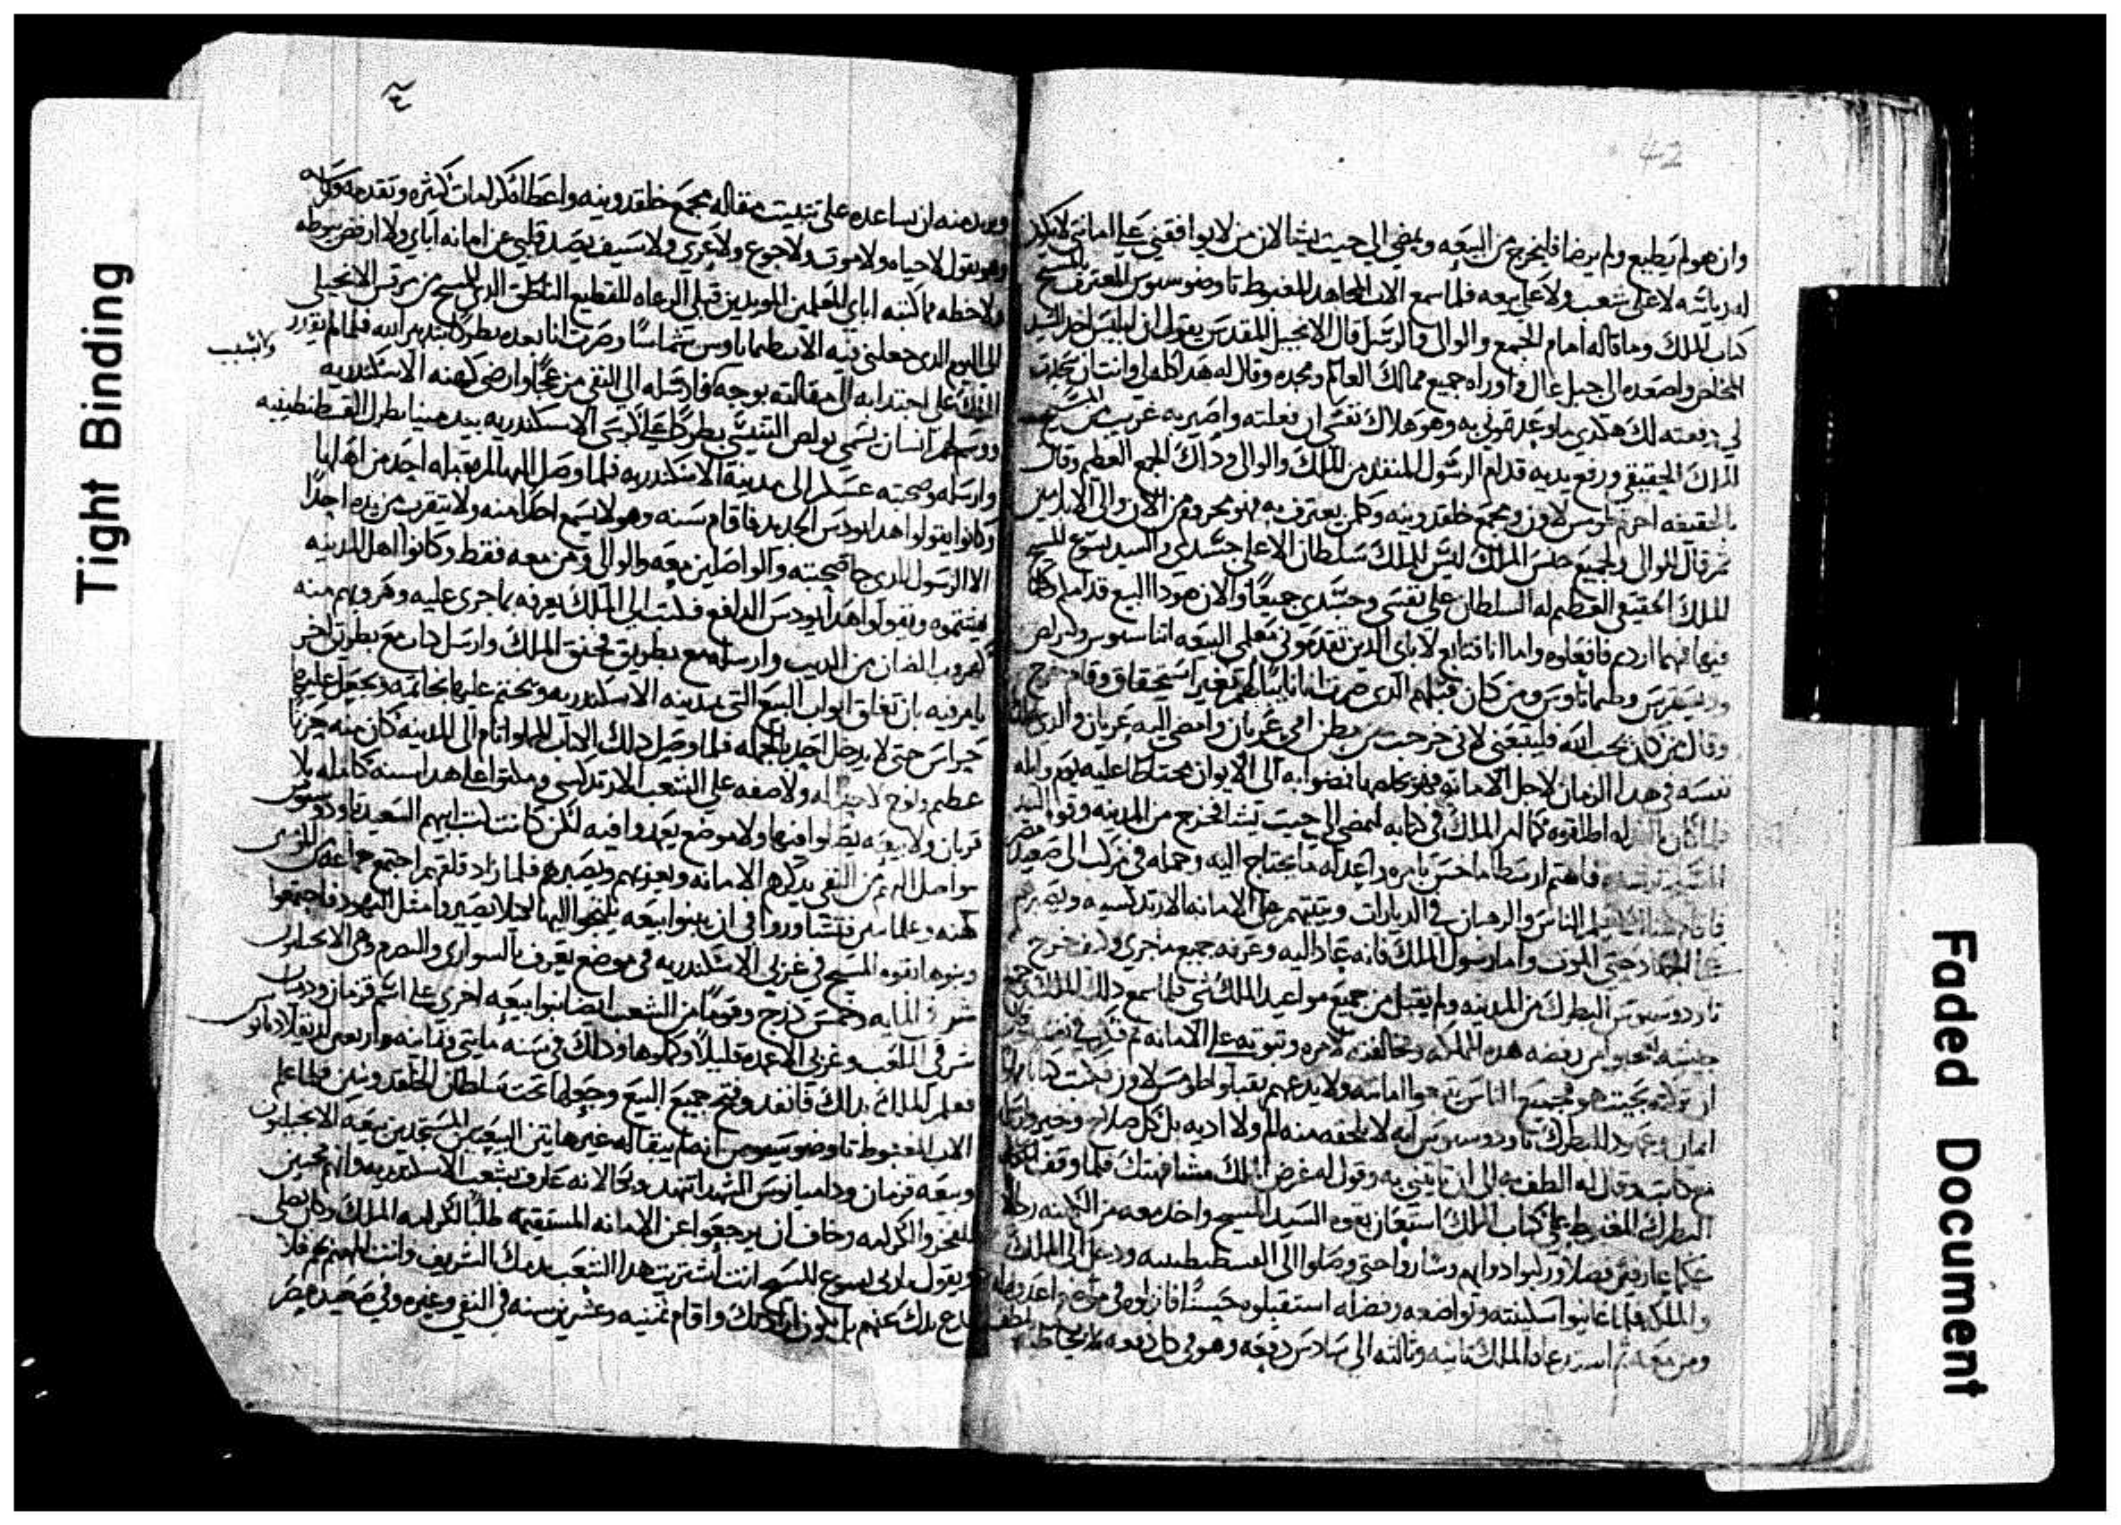 42
وان هو لم يطيع ولم يرضا فليخرج من البيعه ويمضي الى حيث يشا لان من لا يوافقني على امانتي لا يكن
له رياسه لا على شعب ولا على بيعه فلما سمع الاب المجاهد المغبوط تاوضوسيوس المعترف بالمسيح
كتاب الملك وما قاله امام الجمع والوالى والرسل قال الانجيل المقدس يقول ان ابليس اخد السيد
المخلص واصعده الى جبل عال واوراه جميع ممالك العالم ومجده وقال له هدا كله لي وان انت سجدت
لي دفعته لك هكدي ما وعدتموني به وهو هلاك نفسي ان فعلته واصير به غريب من المسيح
الملك الحقيقي ورفع يديه قدام الرسول المنفد من الملك والوالى وداك الجمع العظيم وقال
بالحقيقه احرم طومس لاون ومجمع خلقدونيه وكلمن يعترف به فهو محروم من الان والى الابد امين
ثم قال للوالى ولجميع جلس الملك ليس للملك سلطان الا على جسدي والسيد يسوع المسيح
الملك الحقيقي العظيم له السلطان على نفسي وجسدي جميعا والان هودا البيع قدامك وكلما
فيها فمهما اردتم فافعلوه واما انا فتابع لاباي الدين تقدموني معلمي البيعه اتناسيوس وكيرلص
وديسقرس وطيماتاوس ومن كان قبلهم الدي صرت انا نايبا لهم بغير استحقاق وقام وخرج
وقال من كان يحب الله فليتبعني لاني خرجت من بطن امي عريان وامضي اليه عريان والدي يهلك
نفسه في هدا الزمان لاجل الامانه فهو يخلصها فمضوا به الى الايوان محتاطا عليه يوم وليله
اطلقوه كما امر الملك في كتابه ليمضي الى حيث يشا فخرج من المدينه
فاهتم ارسطاماخس بامره واعد له ما يحتاج اليه وحمله في مركب الى صعيد مصر
فاقام هناك يعلم الناس والرهبان في الديارات ويثبتهم على الامانه الارتدكسيه
الجهاد حتى الموت واما رسول الملك فانه عاد اليه وعرفه جميع ما جري وكيف خرج
تاودوسيوس البطرك من المدينه ولم يقبل من جميع مواعيد الملك شي فلما سمع دلك الملك
رفضه هده المملكه ومخالفته لامره وثبوته على الامانه
هو فجميع الناس يتبعوا امانته ولا يدعهم يقبلوا طومس لاون فكتب كتابا
امان وعهود للبطرك تاودوسيوس انه لا يلحقه منه الم ولا اديه بل كل صلاح وخير
مع كاتبه وقال له الطف به الى ان تاتيني به وقول له غرض الملك مشافهتك فلما وقف
البطرك المغبوط على كتاب الملك استعان بقوه السيد المسيح واخد معه من الكهنه رجالا
علما عارفين فضلا وركبوا دوابهم وساروا حتى وصلوا الى القسطنطينيه ودخل الى الملك
والملكه فلما عاينوا سكينته وتواضعه وفضله استقبلوه حسنا وانزلوه في موضع اعدوه له
ومن معه ثم استدعاه الملك تانيه وتالته الى سادس دفعه وهو في كل دفعه يخاطبه بلطف
ويريد منه ان يساعده على تتبيت مقاله مجمع خلقدونيه واعطاه كرامات كثيره وتقدمه وكرامه
وهو يقول لا حياه ولا موت ولا جوع ولا عري ولا سيف يصد قلبي عن امانه اباي ولا ارفض نقطه
ولا خطه مما كتبه اباي المعلمين المويدين قبلي الرعاه للقطيع الناطق الدي للمسيح من مرقس الانجيلي
الى اليوم الدي جعلني فيه الاب طيماتاوس شماسا وصرت انا بعده بطركا بتدبير الله فلما لم يقدر
الملك على اجتدابه الى مقالته بوجه فارسله الى النفي مزعجا وارضى كهنه الاسكندريه
ولا شعب
ووسم لهم انسان يسمي بولص التنيسي بطركا على كرسى الاسكندريه بيد مينا بطرك القسطنطينيه
وارسله وصحبته عسكر الى مدينة الاسكندريه فلما وصل اليها لم يقبله احد من اهلها
وكانوا يقولوا هدا يودس الجديد فاقام سنه وهو لا يسمع احدا منه ولا يتقرب من يده احدا
الا الرسول الدي جا صحبته والواصلين معه والوالى ومن معه فقط وكانوا اهل المدينه
يشتموه ويقولوا هدا يودس الدافع فكتب الى الملك يعرفه بما جرى عليه وهروبهم منه
كهروب الضان من الديب وارسله مع بطريق فحنق الملك وارسل كتاب مع بطريق اخر
يامر فيه بان تغلق ابواب البيع التي بمدينه الاسكندريه ويختم عليها بخاتمه ويجعل عليها
حراس حتى لا يدخل احد بالجمله فلما وصل دلك الكتاب المملوا اتام الى المدينه كان منه حزنا
عظيم ونوح لا حد له ولا صفه على الشعب الارتدكسي ومكتوا على هدا سنه كامله بلا
قربان ولا بيعه يصلوا فيها ولا موضع يعمدوا فيه لكن كانت كتب ابيهم السعيد تاودوسيوس
تواصل اليهم من النفي يدكرهم الامانه ويعزيهم ويصبرهم فلما زاد قلقهم اجتمع جماعه من المومنين
كهنه وعلمانين فتشاوروا في ان يبنوا بيعه يلتجوا اليها ليلا يصيروا امثل اليهود فاجتمعوا
وبنوها بقوه المسيح في غربي الاسكندريه في موضع يعرف بالسواري وهي الانجيليون
شرقي المايه وخمس درج وقوما من الشعب ايضا بنوا بيعه اخرى على اسم قزمان ودميان
شرقي الملعب وغربي الاعمده قليلا وكملوها ودلك في سنه مايتي وتمانيه واربعين لديقلاديانوس
فعلم الملك بدلك فانفد وفتح جميع البيع وجعلها تحت سلطان الخلقدونيين فلما علم
الاب المغبوط تاوضوسيوس انه لم يبقا له غير هاتين البيعتين المستجدين بيعة الانجيليون
وبيعه قزمان ودميانوس الشهدا تنهد وبكا لانه عارف بشعب الاسكندريه وانهم محبين
للفخر والكرامه وخاف ان يرجعوا عن الامانه المستقيمه طلبا لكرامه الملك وكان يصلي
ويقول يا ربي يسوع المسيح انت اشتريت هدا الشعب بدمك الشريف وانت المهتم بهم فلا
تدع يدك عنهم بل يكون ارادتك واقام تمنيه وعشرين سنه في النفي وغيره وفي صعيد مصر